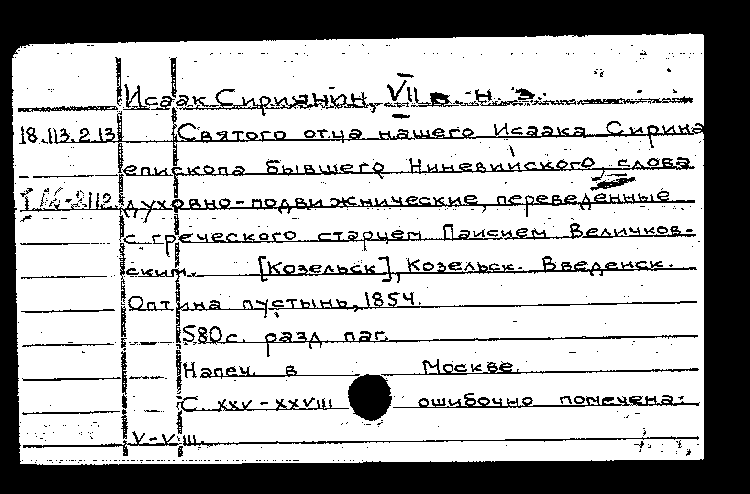 Исаак Сириянин, VII в. н. э.
18.113.2.13 Святого отца нашего Исаака Сирина
епископа бывшего Ниневийского, слова
духовно-подвижнические, переведенные
с греческого старцем Паисием Величков-
ским. [Козельск], Козельск. Введенск.
Оптина пустынь, 1854.
580 с. разд. паг.
Напеч. в Москве.
С. XXV-XXVIII ошибочно помечена:
V-VIII.